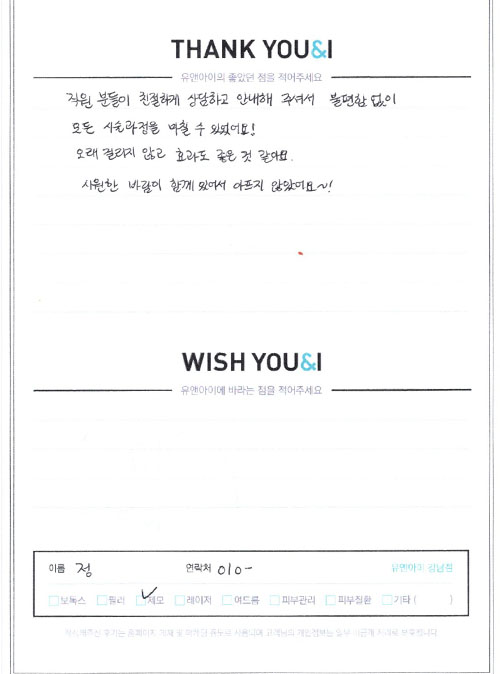 THANK YOU&I
유앤아이의 좋았던 점을 적어주세요
직원 분들이 친절하게 상담하고 안내해 주셔서 불편함 없이
모든 시술과정을 마칠 수 있었어요!
오래 걸리지 않고 효과도 좋은 것 같아요.
시원한 바람이 함께 있어서 아프지 않았어요~!
WISH YOU&I
유앤아이에 바라는 점을 적어주세요
이름 정 연락처 010- 유앤아이 강남점
보톡스 필러 제모 레이저 여드름 피부관리 피부질환 기타 ( )